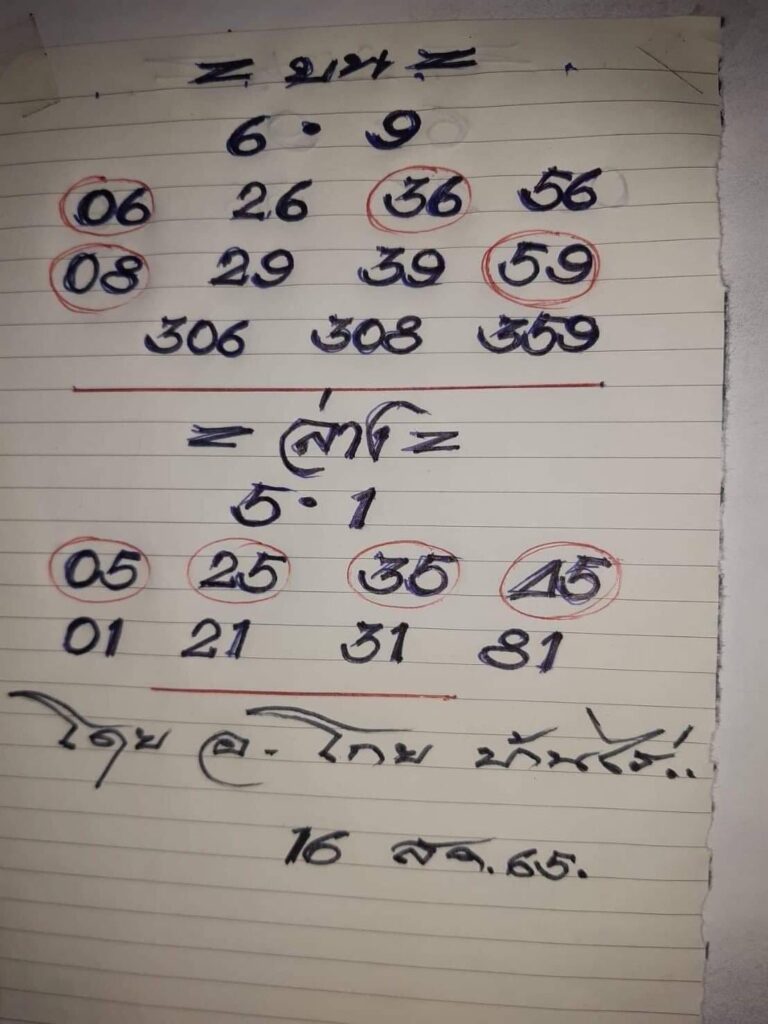 = บน =
6 • 9
06 26 36 56
08 29 39 59
306 308 359
= ล่าง =
5 • 1
05 25 35 45
01 21 31 81
โดย อ. โทย บ้านไร่..
16 สค. 65.